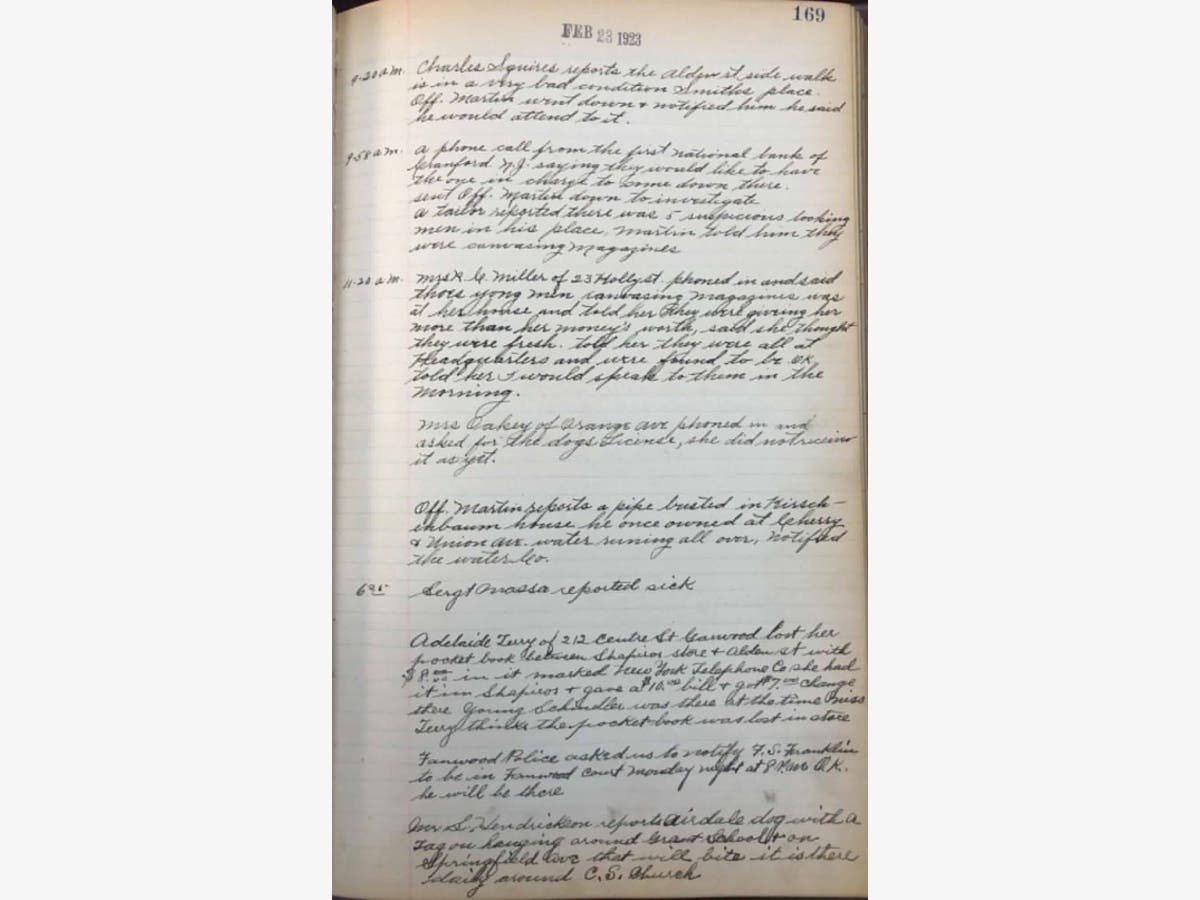 169
FEB 23 1923
9-20 a.m. Charles Squires reports the Alden st side walk
is in a very bad condition Smiths place.
Off. Martin went down & notified him he said
he would attend to it.
9-58 a m. a phone call from the first national bank of
Cranford N.J. saying they would like to have
the one in charge to come down there.
sent Off. Martin down to investigate
a tailor reported there was 5 suspicious looking
men in his place, Martin told him they
were canvasing magazines
11-20 a.m. Mrs R. C. Miller of 23 Holly st. phoned in and said
thoes yong men canvasing magazines was
at her house and told her they were giveing her
more than her money's worth, said she thought
they were fresh. told her they were all at
Headquarters and were found to be OK
told her I would speak to them in the
Morning.
Mrs Oakey of Orange ave phoned in and
asked for the dogs License, she did not receive
it as yet.
Off. Martin reports a pipe busted in Kirsch-
enbaum house he once owned at Cherry
& Union ave. water runing all over, notified
the water Co.
6 05 Sergt Massa reported sick
Adelaide Terry of 212 Centre St Garwood lost her
pocket book between Shapiros store & Alden st with
$8.00 in it marked New York Telephone Co she had
it in Shapiros & gave a $10.00 bill & got $7.00 change
there Young Schindler was there at the time Miss
Terry thinks the pocket book was lost in store
Fanwood Police asked us to notify F.S. Franklin
to be in Fanwood Court Monday night at 8 P.M. O.K.
he will be there
Mr S. Hendrickson reports airdale dog with a
Tag on hanging around Grant School & on
Springfield ave that will bite it is there
daily around C.S. Church